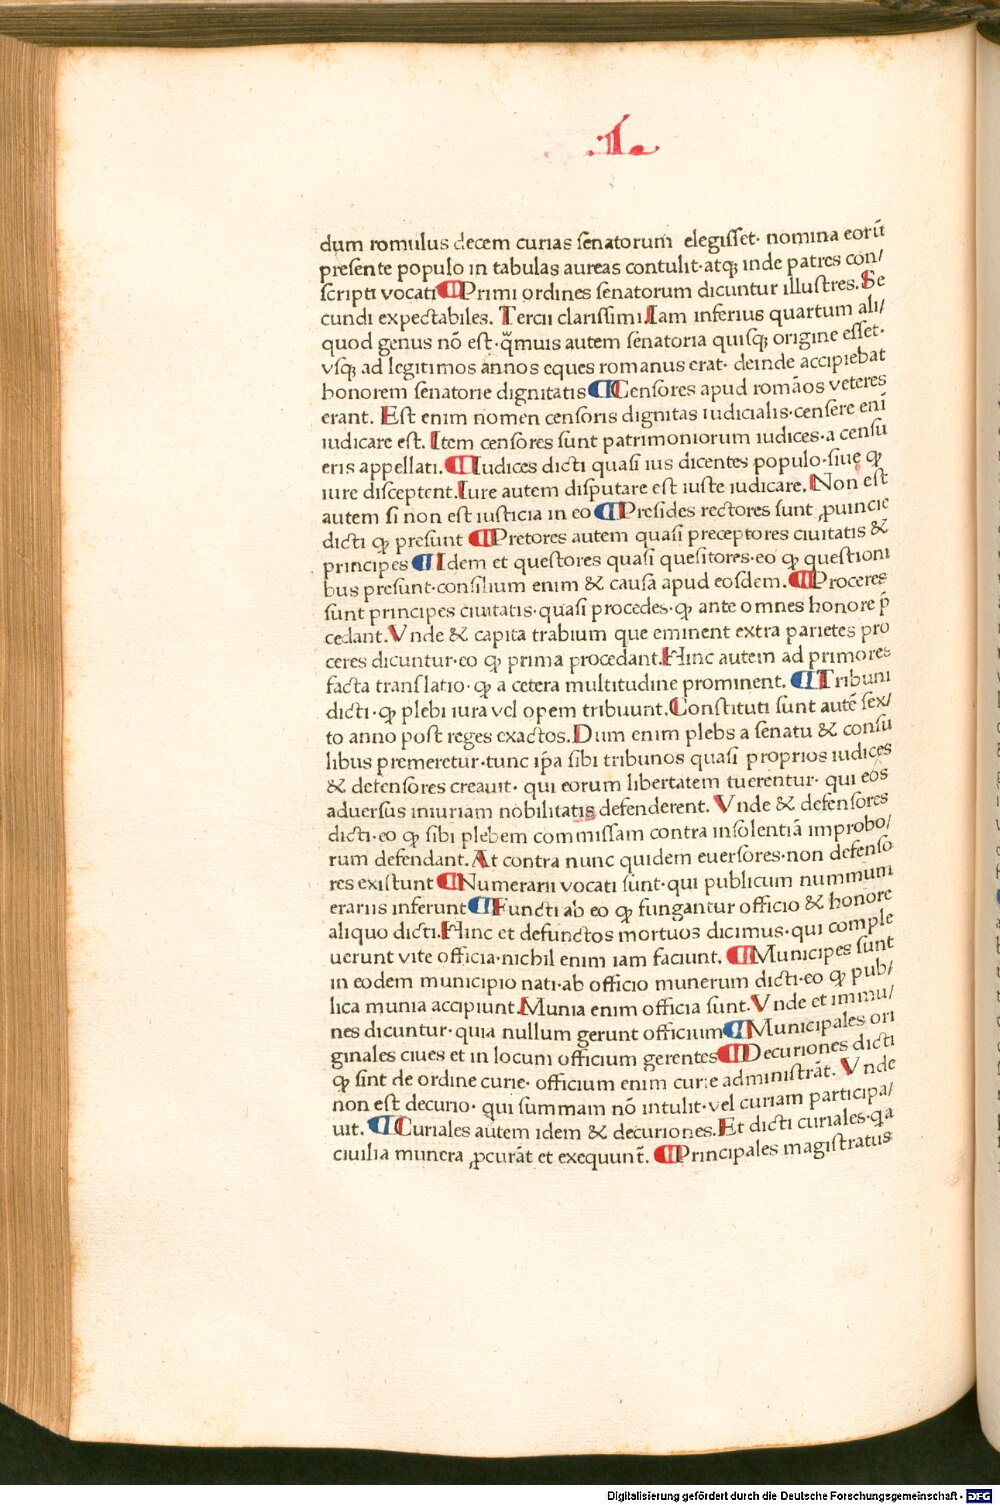 .I.
dum romulus decem curias ſenatorum elegiſſet· nomina eorū
preſente populo in tabulas aureas contulit·atqꝫ inde patres con/
ſcripti vocati ¶ Primi ordines ſenatorum dicuntur illuſtres. Se
cundi expectabiles. Tercii clariſſimi Iam inferius quartum ali/
quod genus nō eſt·qͣmuis autem ſenatoria quiſqꝫ origine eſſet·
vſqꝫ ad legitimos annos eques romanus erat· deinde accipiebat
honorem ſenatorie dignitatis ¶ Cenſores apud romāos veteres
erant. Eſt enim nomen cenſoris dignitas iudicialis·cenſere enī
iudicare eſt. Item cenſores ſunt patrimoniorum iudices·a cenſu
eris appellati. ¶ Iudices dicti quaſi ius dicentes populo·ſiue ꝙ
iure diſceptent. Iure autem diſputare eſt iuſte iudicare. Non eſt
autem ſi non eſt iuſticia in eo ¶ Preſides rectores ſunt ꝓuincie
dicti ꝙ preſunt ¶ Pretores autem quaſi preceptores ciuitatis &
principes ¶ Idem et queſtores quaſi queſitores·eo ꝙ queſtioni
bus preſunt·conſilium enim & cauſa apud eoſdem. ¶ Proceres
ſunt principes ciuitatis·quaſi procedes·ꝙ ante omnes honore p̄
cedant. Vnde & capita trabium que eminent extra parietes pro
ceres dicuntur·eo ꝙ prima procedant. Hinc autem ad primores
facta tranſlatio·ꝙ a cetera multitudine prominent. ¶ Tribuni
dicti·ꝙ plebi iura vel opem tribuunt. Conſtituti ſunt autē ſex/
to anno poſt reges exactos. Dum enim plebs a ſenatu & conſu
libus premeretur·tunc ip̄a ſibi tribunos quaſi proprios iudices
& defenſores creauit· qui eorum libertatem tuerentur· qui eos
aduerſus iniuriam nobilitatis defenderent. Vnde & defenſores
dicti·eo ꝙ ſibi plebem commiſſam contra inſolentiā improbo/
rum defendant. At contra nunc quidem euerſores·non defenſo
res exiſtunt ¶ Numerarii vocati ſunt·qui publicum nummum
erariis inferunt ¶ Functi ab eo ꝙ fungantur officio & honore
aliquo dicti. Hinc et defunctos mortuos dicimus·qui comple
uerunt vite officia·nichil enim iam faciunt. ¶ Municipes ſunt
in eodem municipio nati·ab officio munerum dicti·eo ꝙ pub/
lica munia accipiunt. Munia enim officia ſunt. Vnde et immu/
nes dicuntur· quia nullum gerunt officium ¶ Municipales ori
ginales ciues et in locum officium gerentes ¶ Decuriones dicti
ꝙ ſint de ordine curie· officium enim curie adminiſtrāt. Vnde
non eſt decurio· qui ſummam nō intulit·vel curiam participa/
uit. ¶ Curiales autem idem & decuriones. Et dicti curiales·qa
ciuilia munera ꝓcurāt et exequunt̄. ¶ Principales magiſtratus
Digitalisierung gefördert durch die Deutsche Forschungsgemeinschaft - DFG